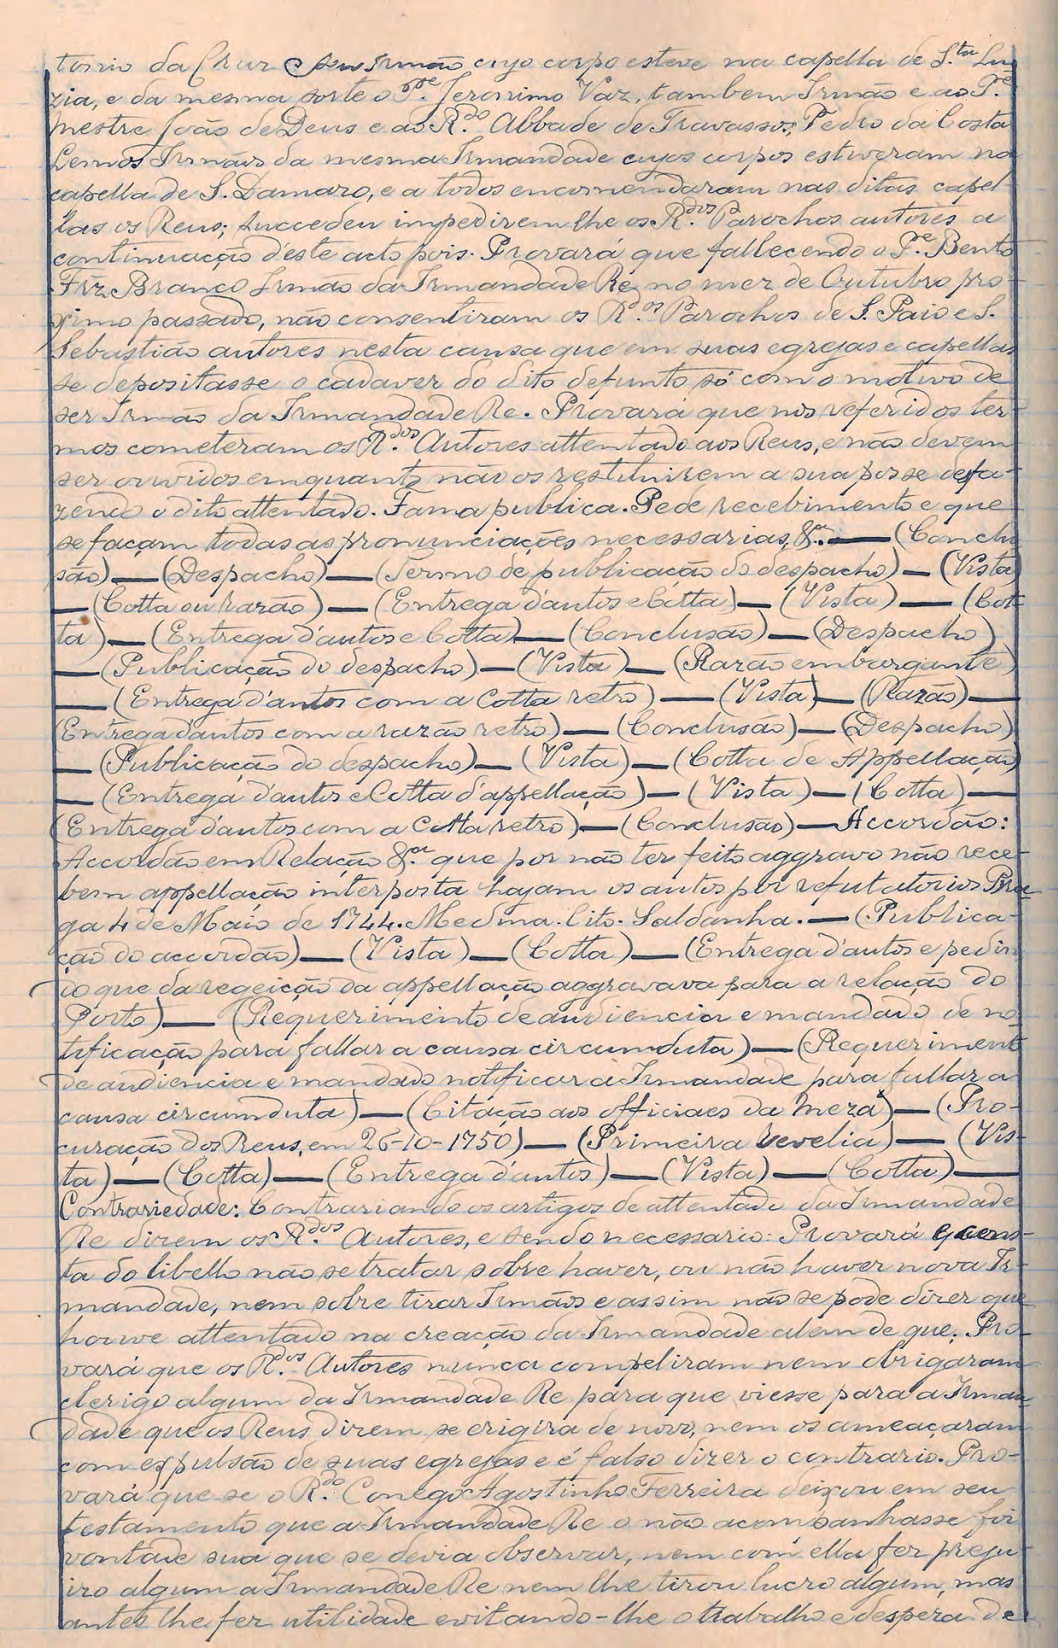 torio da Cruz e seu Irmão cujo corpo esteve na capella de S.ta Lu
zia, e da mesma sorte o P.e Jeronimo Vaz, tambem Irmão e ao P.e
Mestre João de Deus e ao R.do Abbade de Travassos, Pedro da Costa
Lemos Irmãos da mesma Irmandade cujos corpos estiveram na
capella de S. Damaro, e a todos encomendaram nas ditas capel-
las os Reus; succedeu impedirem lhe os R.dos Parochos autores a
continuação d'este acto pois. Provará que fallecendo o P.e Bento
Frz Branco Irmão da Irmandade Re, no mez de Outubro pro-
ximo passado, não consentiram os R.dos Parochos de S. Paio e S.
Sebastião autores nesta causa que em suas egrejas e capellas
se depositasse o cadaver do dito defunto só com o motivo de
ser Irmão da Irmandade Re. Provará que nos referidos ter-
mos cometeram os R.dos Autores attentado aos Reus, e não devem
ser ouvidos emquanto não os restituirem a sua posse defa-
zendo o dito attentado. Fama publica. Pede recebimento e que
se façam todas as pronunciações necessarias, &.a — (Conclu
são) — (Despacho) — (Termo de publicação do despacho) — (Vista)
— (Cotta ou razão) — (Entrega d'autos e Cotta) — (Vista) — (Cot-
ta) — (Entrega d'autos e Cotta) — (Conclusão) — (Despacho)
— (Publicação do despacho) — (Vista) — (Razão embargante)
— (Entrega d'autos com a Cotta retro) — (Vista) — (Razão) —
(Entrega d'autos com a razão retro) — (Conclusão) — (Despacho)
— (Publicação do despacho) — (Vista) — (Cotta de Appellação)
— (Entrega d'autos e Cotta d'appellação) — (Vista) — (Cotta) —
(Entrega d'autos com a Cotta retro) — (Conclusão) — Accordão:
Accordão em Relação &.a que por não ter feito aggravo não rece-
bem appellação interposta hajam os autos por refutatorios Bra
ga 4 de Maio de 1744. Medina. Cito. Saldanha. — (Publica-
ção do accordão) — (Vista) — (Cotta) — (Entrega d'autos e pedin
io que da regeição da appellação aggravava para a relação do
Porto) — (Requerimento de audiencia e mandado de no-
tificação para fallar a causa circumduta) — (Requeriment
de audiencia e mandado notificar a Irmandade para fallar a
causa circumduta) — (Citação aos officiaes da Meza) — (Pro-
curação dos Reus, em 26-10-1750) — (Primeira revelia) — (Vis-
ta) — (Cotta) — (Entrega d'autos) — (Vista) — (Cotta) —
Contrariedade: Contrariando os artigos de attentado da Irmandade
Re dizem os R.dos Autores, e sendo necessario: Provará q cons-
ta do libello não se tratar sobre haver, ou não haver nova Ir-
mandade, nem sobre tirar Irmãos e assim não se pode dizer que
houve attentado na creação da Irmandade alem de que; Pro-
vará que os R.dos Autores nunca compeliram nem obrigaram
clerigo algum da Irmandade Re para que viesse para a Irman
dade que os Reus dizem se erigira de novo, nem os ameaçaram
com espulsão de suas egrejas e é falso dizer o contrario. Pro-
vará que se o R.do Conego Agostinho Ferreira deixou em seu
testamento que a Irmandade Re o não acompanhasse foi
vontade sua que se devia observar, nem com ella fez preju-
izo algum a Irmandade Re nem lhe tirou lucro algum, mas
antes lhe fez utilidade evitando-lhe o trabalho e despeza de